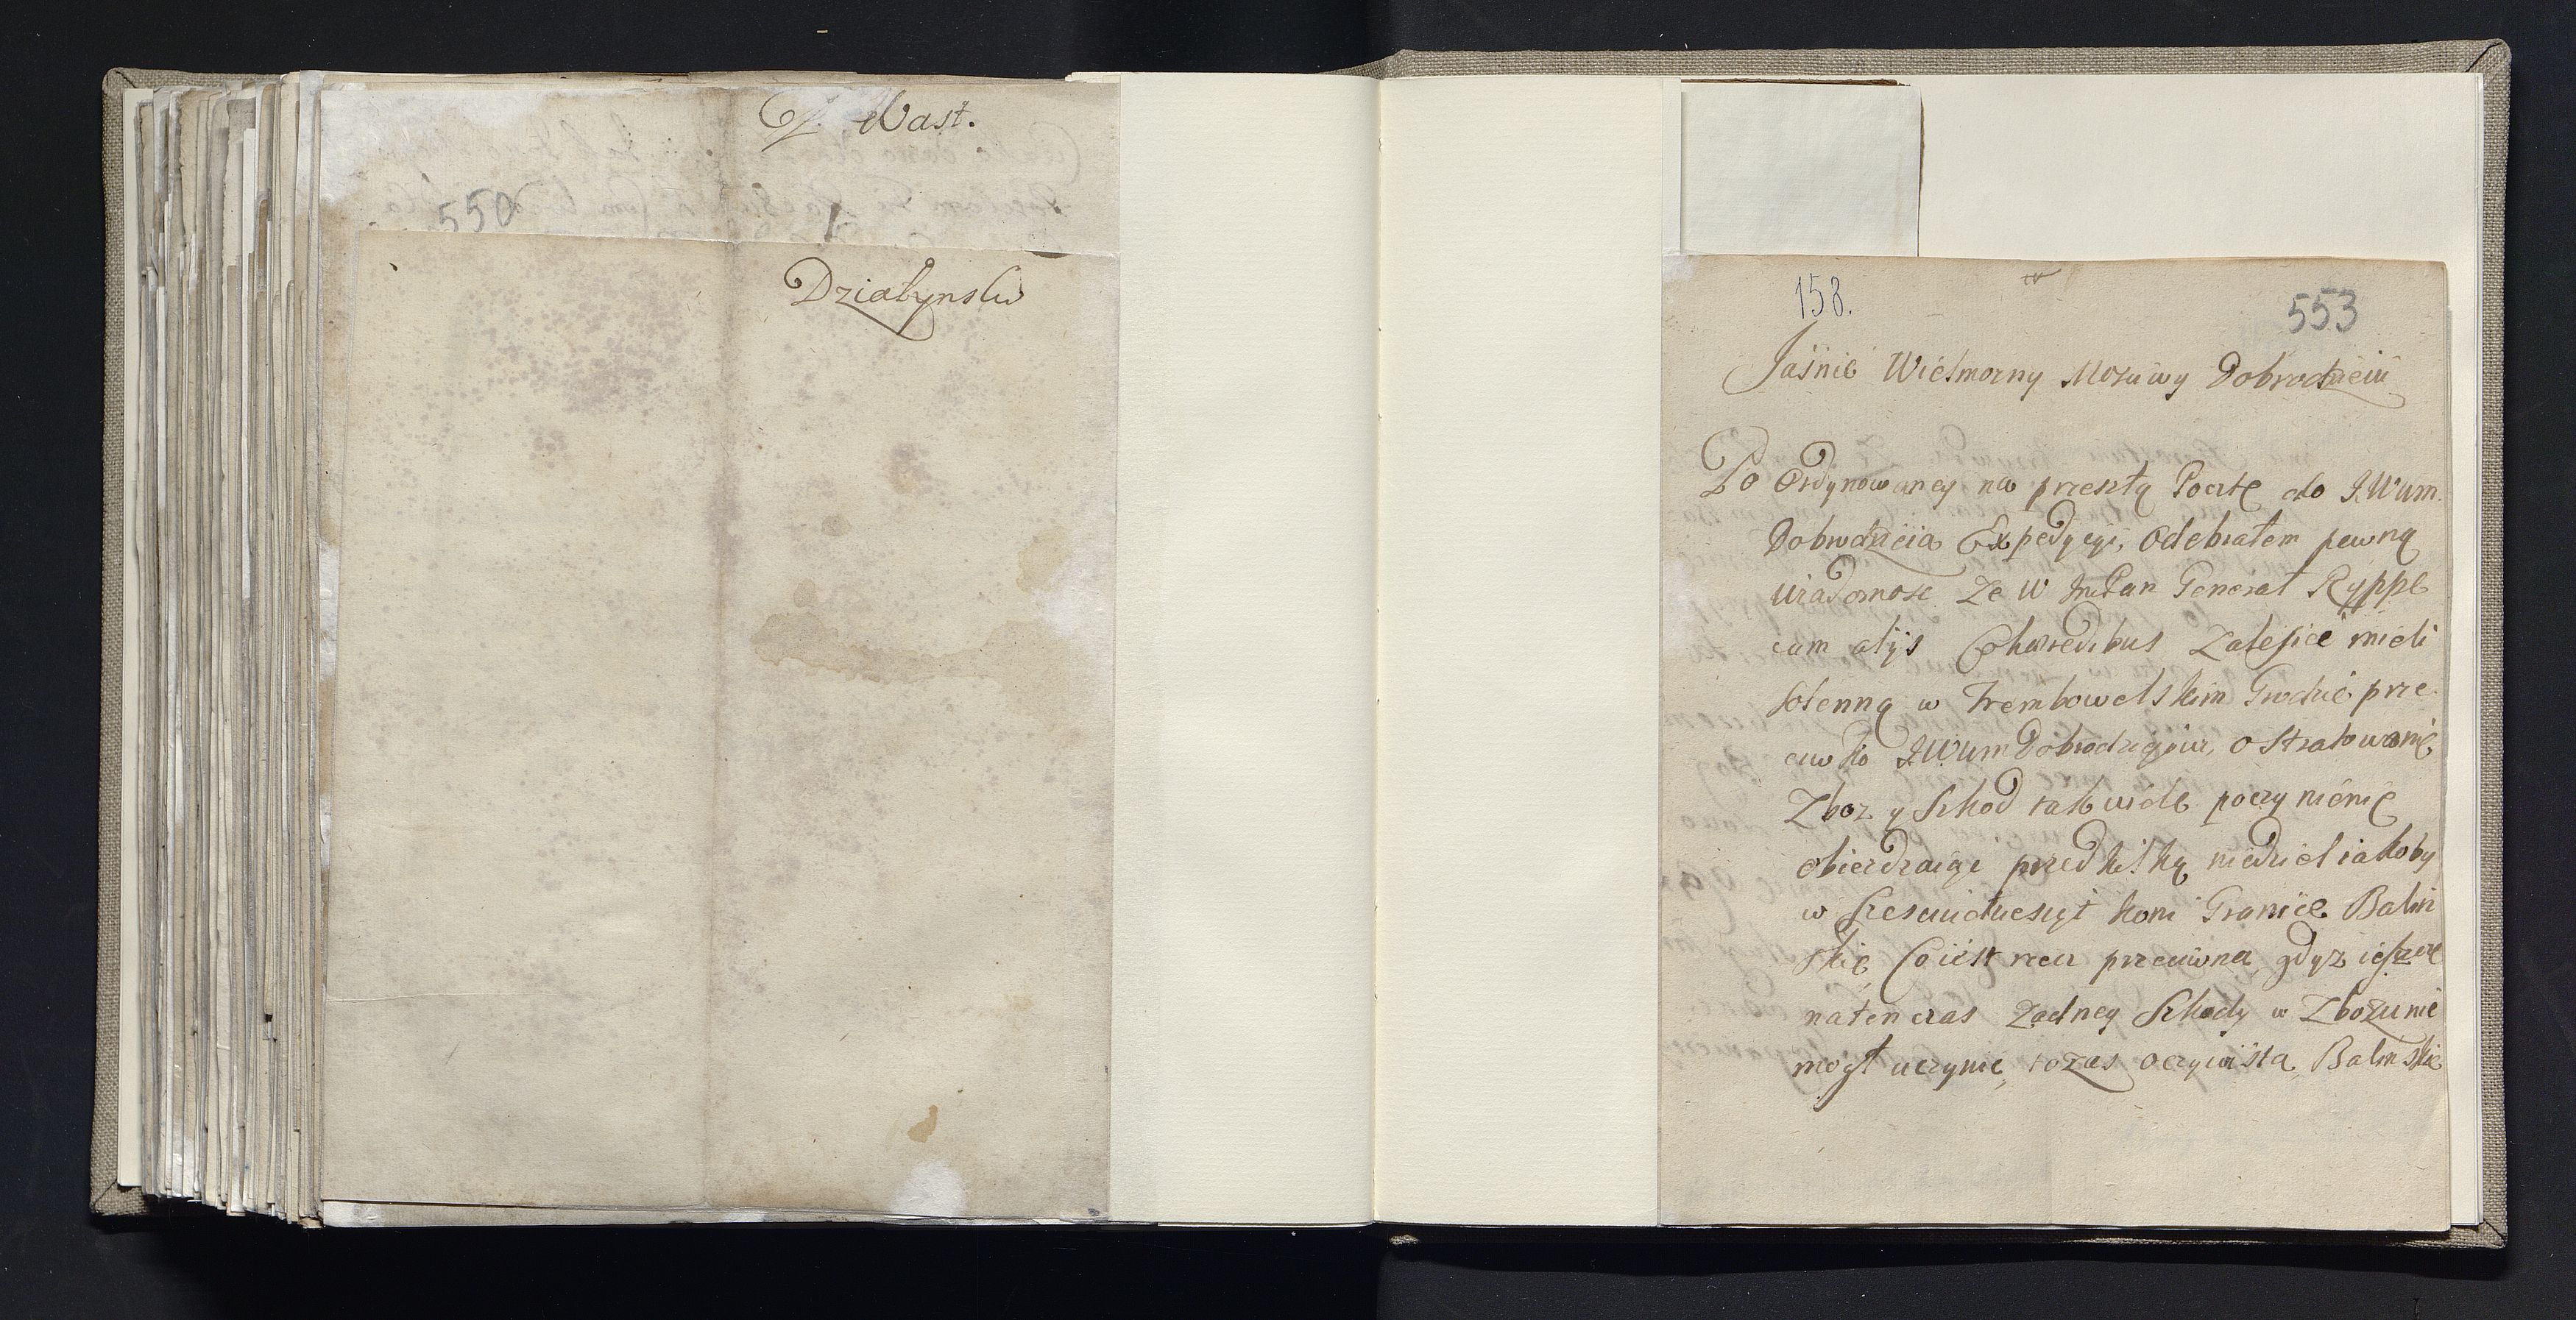 Wast.
550
Działynski
158.
553
Jaśnie Wielmozny Mosciwy Dobrodzieiu
Po Ordynowaney na przeszłą Pocztę do J.W.um.
Dobrodzieia Expedycyi, Odebrałem pewną
wiadomosc ze W ImPan Generał Ryppe
cum alijs Cohæredibus Zalesice mieli
solenną w Trembowelskim Grodzie prze
ciwko J.W.um Dobrodzieiowi, o Stratowanie
Zboz y Szkod tak wiele poczynienie
obiezdzaiąc przed kilką niedziel iakoby
w Szescdziesiąt koni Granice Balin
skie, Co iest rzecz przeciwna, gdyz ieszcze
natenczas Zadney Szkody w Zbozu nie
mogł uczynic, tozas oczywista, Balinskie